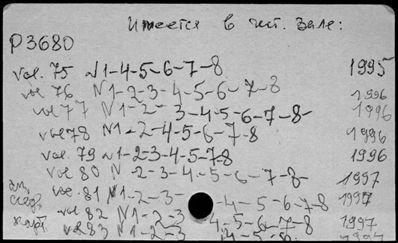 Имеется в чит. зале:
P3680
vol. 75 N1-4-5-6-7-8 1995
vol 76 N1-2-3-4-5-6-7-8 1996
vol 77 N1-2-3-4-5-6-7-8- 1996
vol 78 N1-2-4-5-6-7-8 1996
vol. 79 N1-2-3-4-5-7-8 1996
vol 80 N-2-3-4-5-6-7-8- 1997
vol. 81 N1-2-3-4-5-6-7-8 1997
vol 82 N1-2-3-4-5-6-7-8 1997
vol 83 N1-2-3 1997